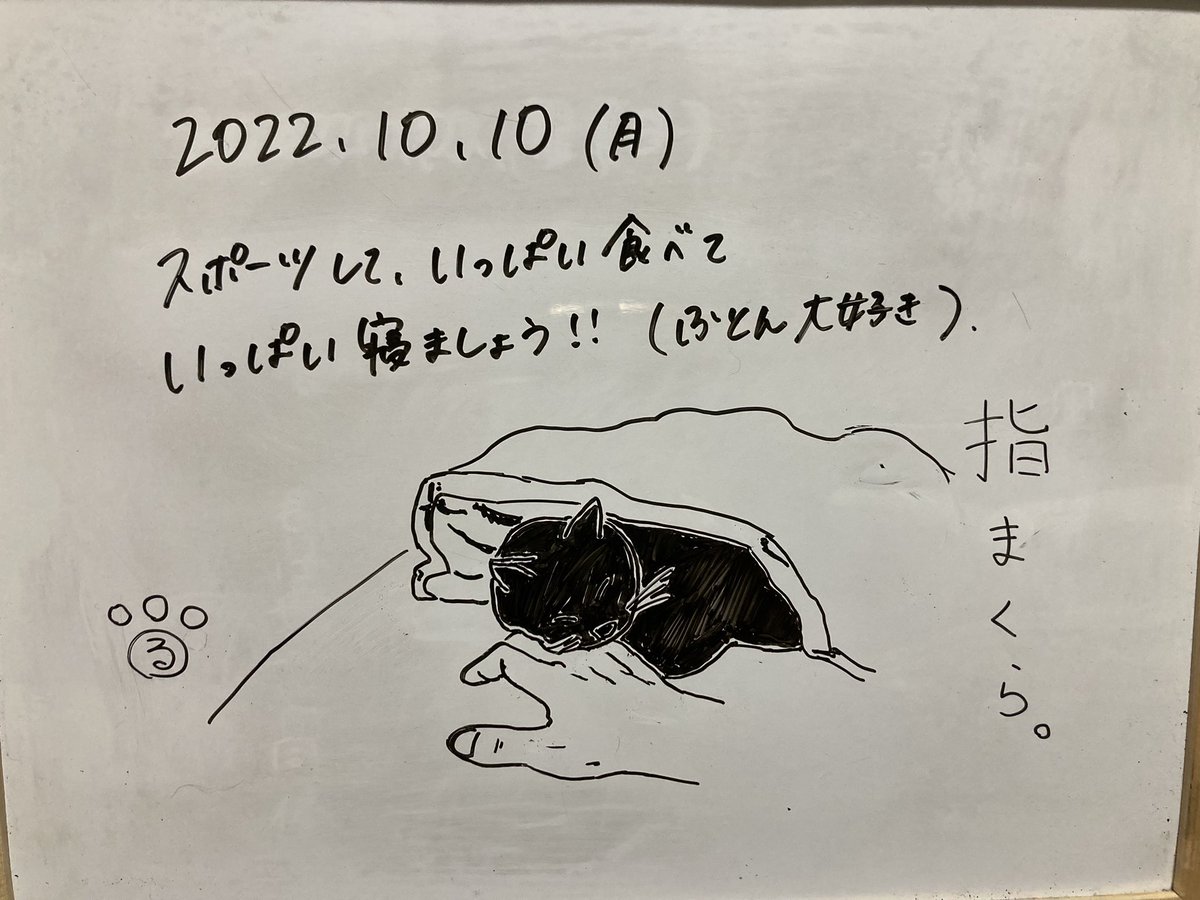 2022.10.10(月)
スポーツして、いっぱい食べて
いっぱい寝ましょう!!(ふとん大好き).
指まくら。
る